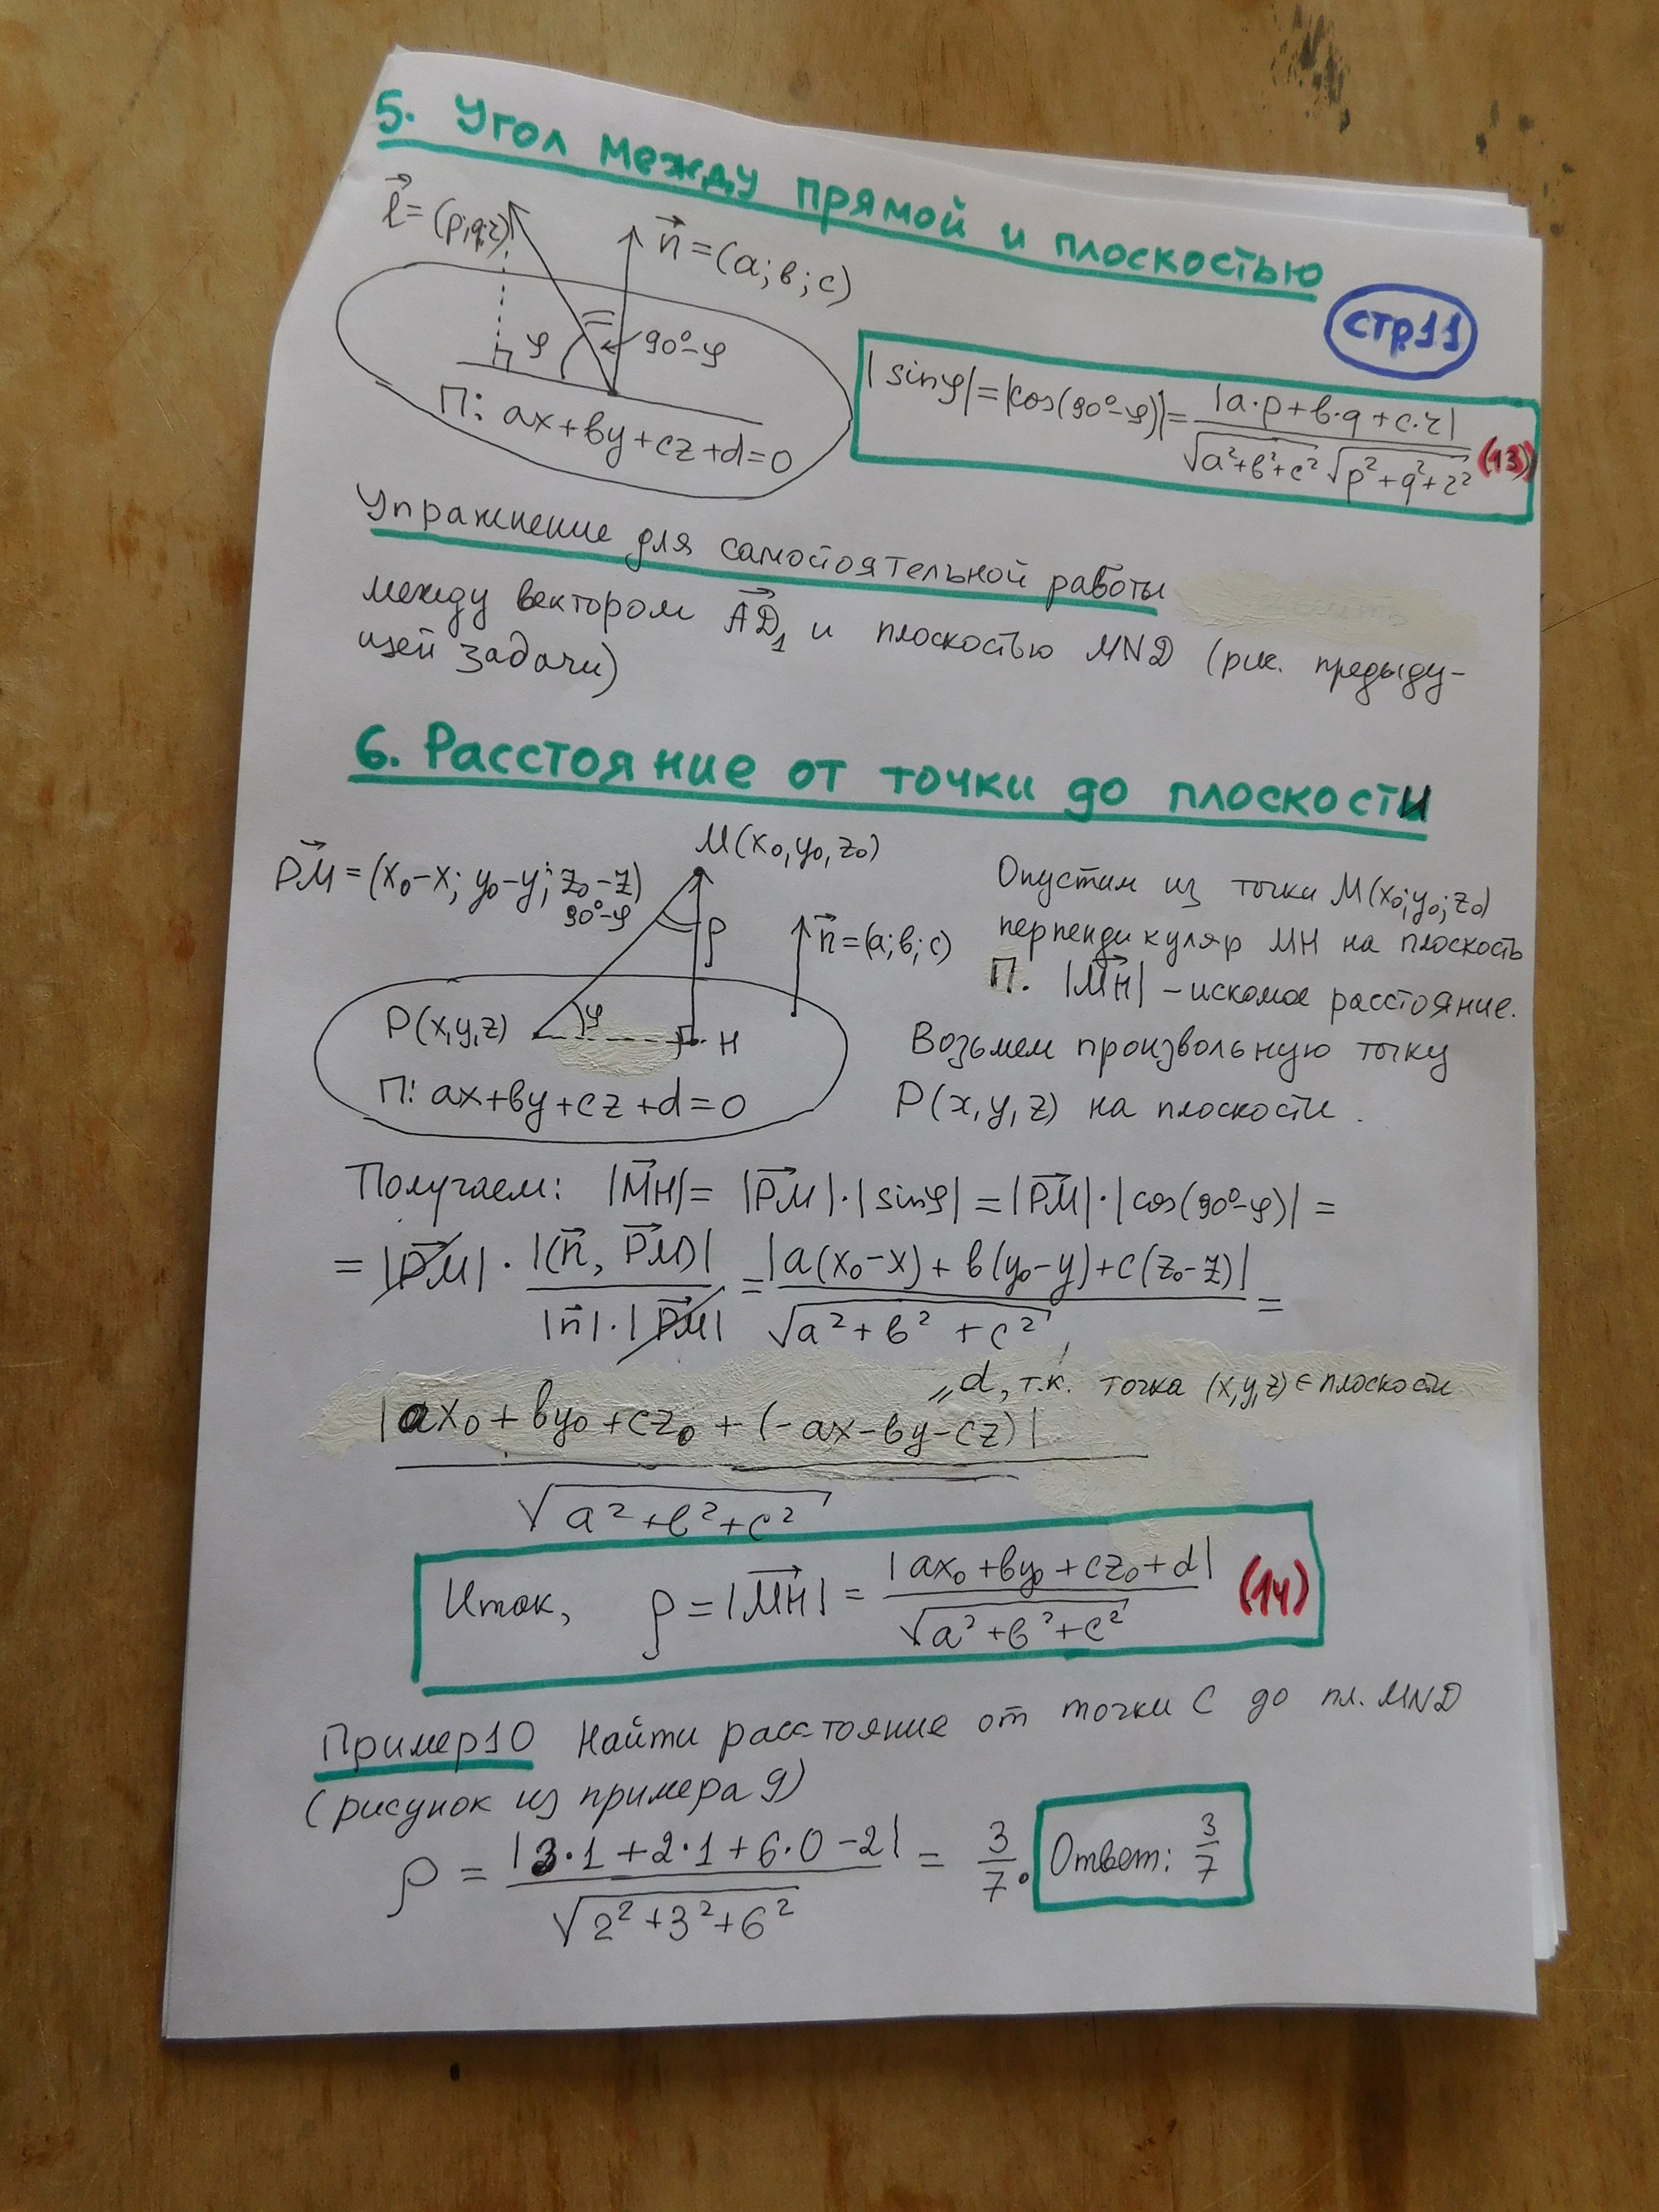 5. Угол между прямой и плоскостью
l⃗=(p;q;r)
n⃗=(a;b;c)
стр11
φ
90°-φ
П: ax+by+cz+d=0
|sinφ|=|cos(90°-φ)|=|a·p+b·q+c·r|/(√(a²+b²+c²) √(p²+q²+r²)) (13)
Упражнение для самостоятельной работы
между вектором AD₁ и плоскостью MND (рис. предыду-
щей задачи)
6. Расстояние от точки до плоскости
M(x₀,y₀,z₀)
PM=(x₀-x; y₀-y; z₀-z)
90°-φ
ρ
n⃗=(a;b;c)
P(x,y,z)
φ
H
П: ax+by+cz+d=0
Опустим из точки M(x₀;y₀;z₀)
перпендикуляр MH на плоскость
П. |MH| - искомое расстояние.
Возьмем произвольную точку
P(x,y,z) на плоскости.
Получаем: |MH|= |PM|·|sinφ|=|PM|·|cos(90°-φ)|=
=|PM|·|(n⃗, PM)|/(|n⃗|·|PM|)=|a(x₀-x)+b(y₀-y)+c(z₀-z)|/√(a²+b²+c²)=
"d, т.к. точка (x,y,z)∈плоскости
|ax₀+by₀+cz₀+(-ax-by-cz)|
√(a²+b²+c²)
Итак, ρ=|MH|=|ax₀+by₀+cz₀+d|/√(a²+b²+c²) (14)
Пример10 Найти расстояние от точки C до пл. MND
(рисунок из примера 9)
ρ=|3·1+2·1+6·0-2|/√(2²+3²+6²)=3/7. Ответ: 3/7